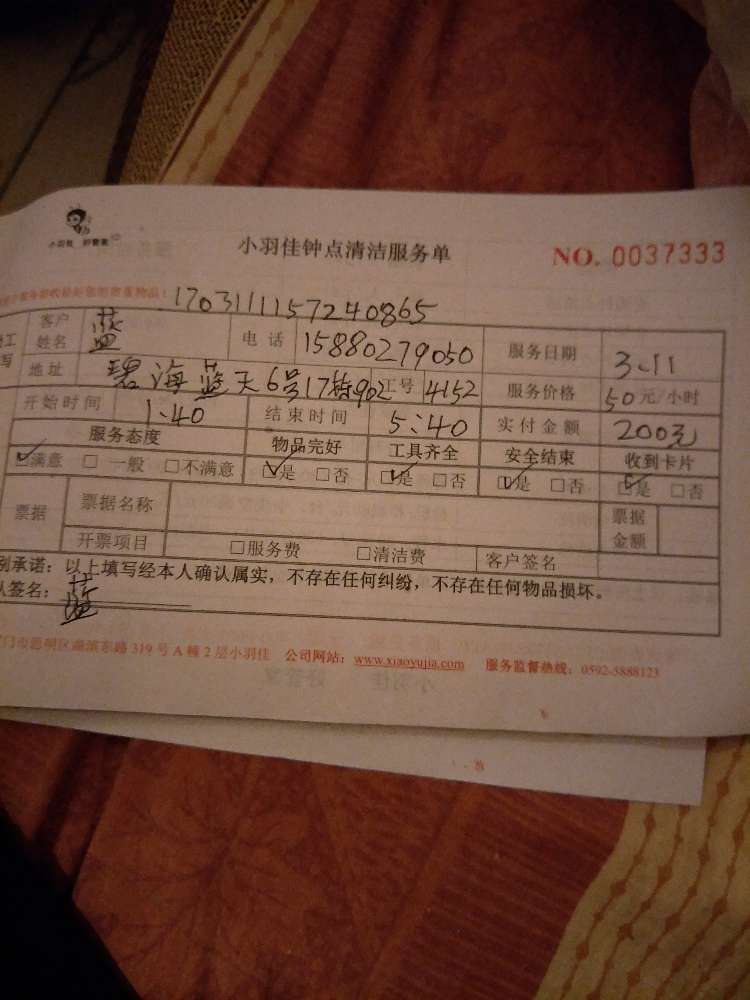 小羽佳 好管家
小羽佳钟点清洁服务单 NO. 0037333
1703111157240865
客户姓名 蓝 电话 15880279050 服务日期 3.11
地址 碧海蓝天6号17栋902 工号 4152 服务价格 50元/小时
开始时间 1:40 结束时间 5:40 实付金额 200元
服务态度 物品完好 工具齐全 安全结束 收到卡片
☑满意 □一般 □不满意 ☑是 □否 ☑是 □否 ☑是 □否 ☑是 □否
票据 票据名称 票据金额
开票项目 □服务费 □清洁费 客户签名
别承诺：以上填写经本人确认属实，不存在任何纠纷，不存在任何物品损坏。
签名：蓝
门市思明区湖滨东路319号A幢2层小羽佳 公司网站：www.xiaoyujia.com 服务监督热线：0592-5888123